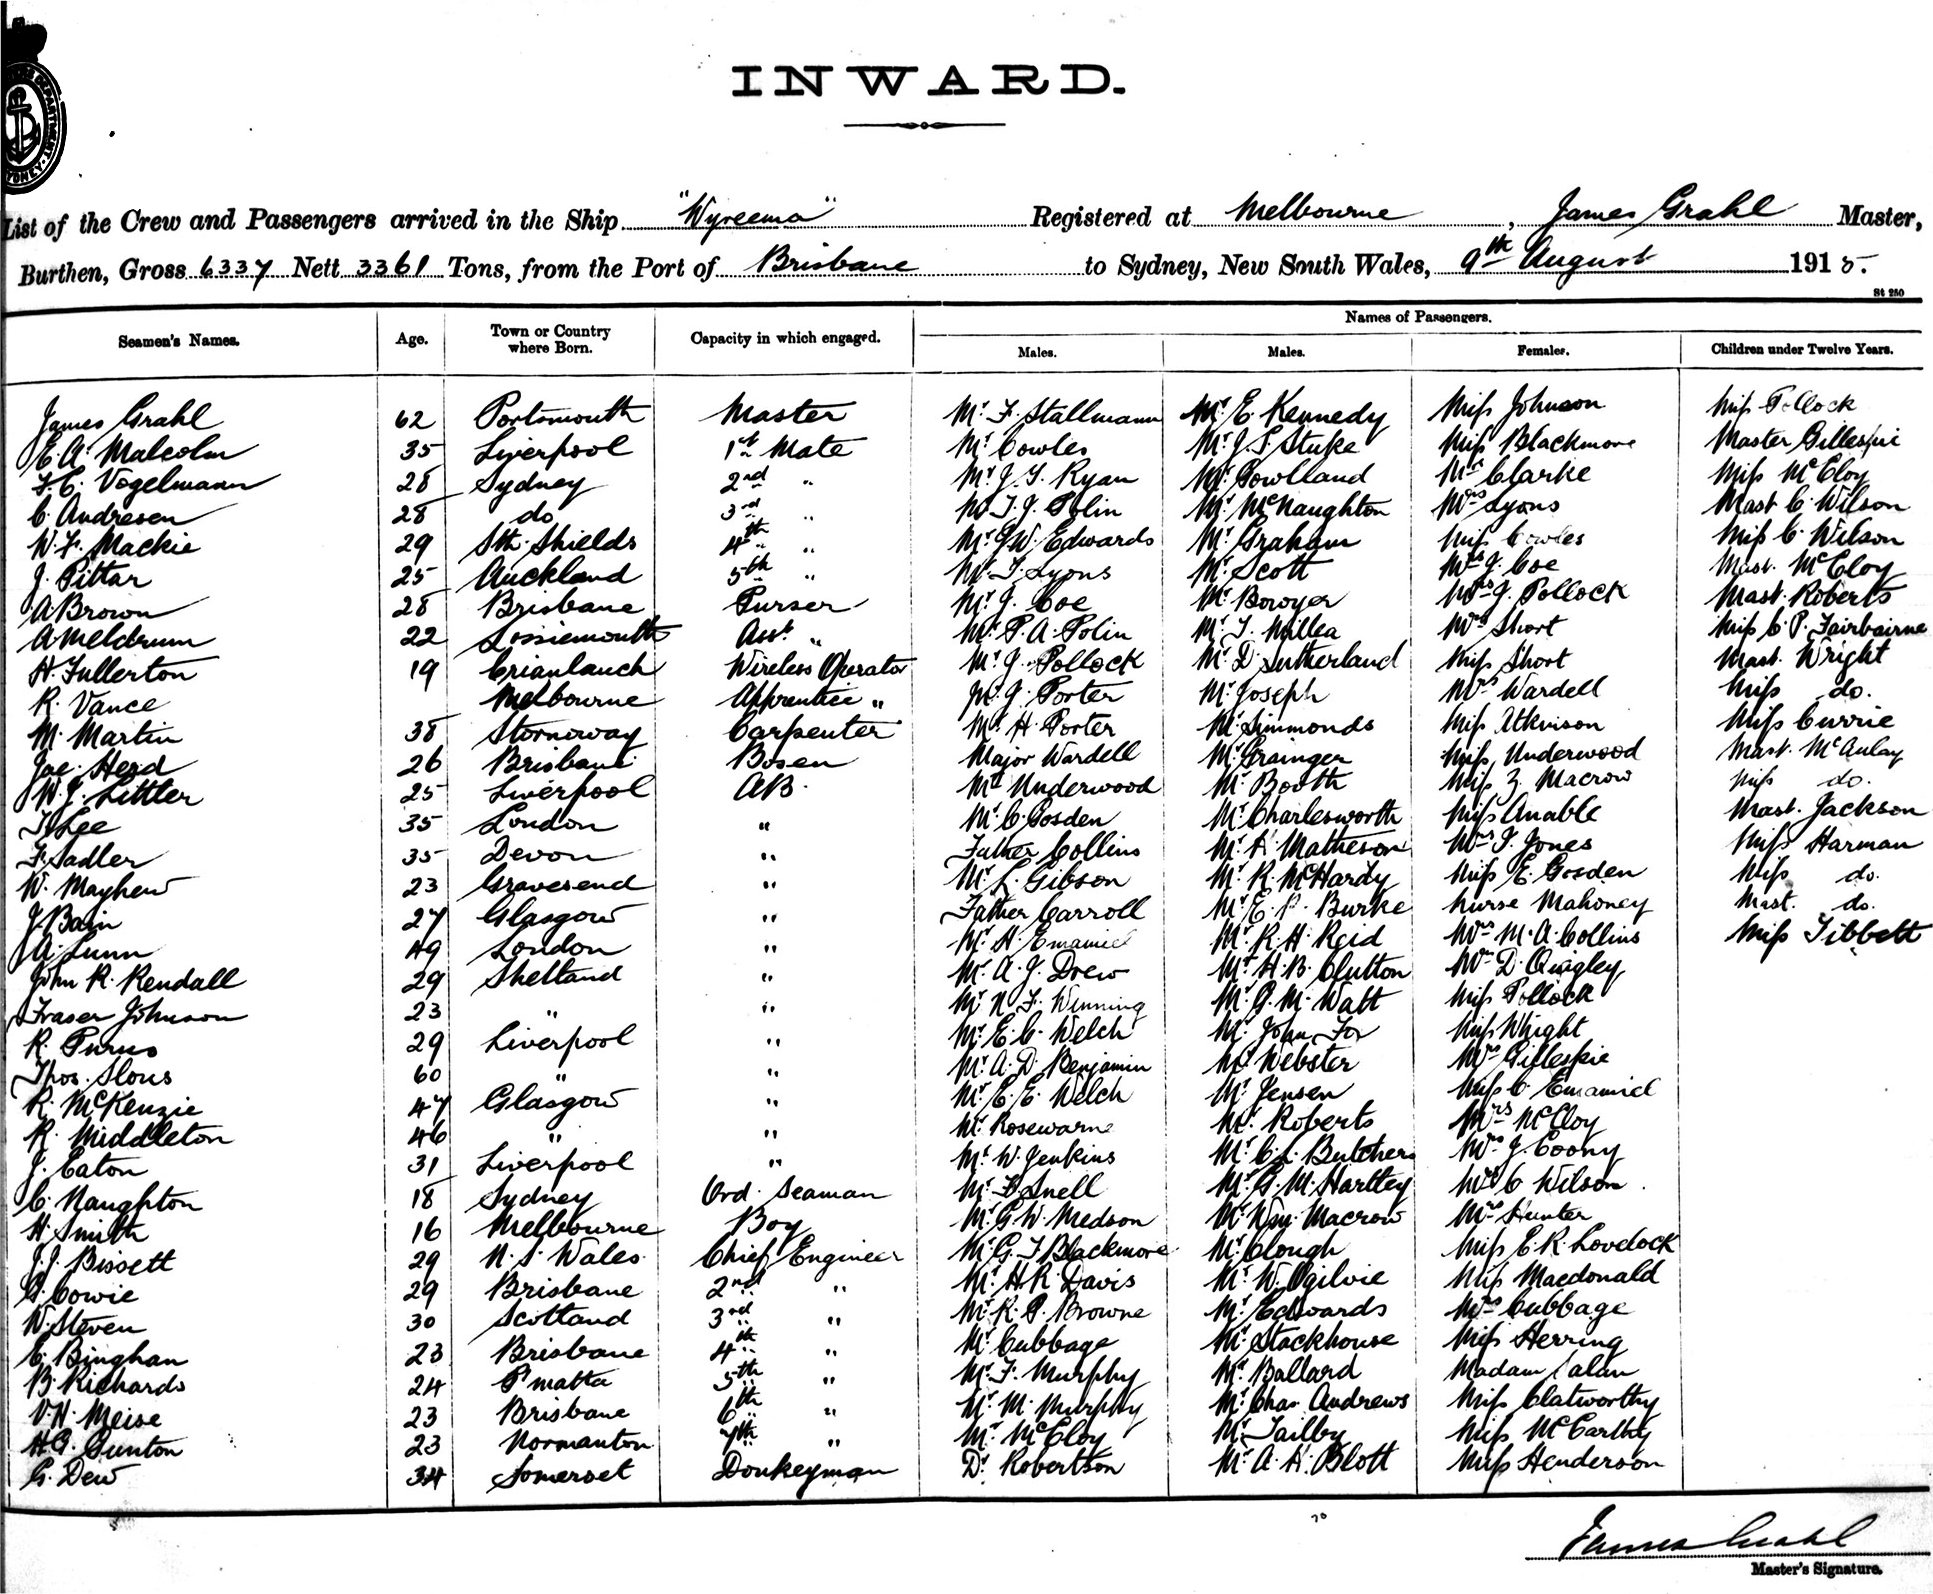 INWARD.
List of the Crew and Passengers arrived in the Ship "Wyreema" Registered at Melbourne, James Grahl Master,
Burthen, Gross 6337 Nett 3361 Tons, from the Port of Brisbane to Sydney, New South Wales, 9th August 1915.
St 250
Names of Passengers.
Seamen's Names. Age. Town or Country where Born. Capacity in which engaged. Males. Males. Females. Children under Twelve Years.
James Grahl 62 Portsmouth Master Mr F. Stallmann Mr E. Kennedy Miss Johnson Miss Pollock
E. A. Malcolm 35 Liverpool 1st Mate Mr Cowles Mr J. S. Stuke Miss Blackmore Master Gillespie
F. C. Vogelmann 28 Sydney 2nd " Mr J. T. Ryan Mr Gowlland Mrs Clarke Miss McCloy
C. Andresen 28 do 3rd " Mr T. J. Polin Mr McNaughton Mrs Lyons Mast C. Wilson
W. F. Mackie 29 Sth. Shields 4th " Mr G. W. Edwards Mr Graham Miss Cowles Miss C. Wilson
J. Pittar 25 Auckland 5th " Mr T. Lyons Mr Scott Mrs J. Coe Mast. McCloy
A Brown 28 Brisbane Purser Mr J. Coe Mr Bowyer Mrs J. Pollock Mast. Roberts
A Meldrum 22 Lossiemouth Asst. " Mr P. A. Polin Mr J. Millea Mrs Short Miss C. P. Fairbairne
H. Fullerton 19 Crianlauch Wireless Operator Mr J. Pollock Mr D. Sutherland Miss Short Mast. Wright
R. Vance Melbourne Apprentice " Mr J. Porter Mr Joseph Mrs Wardell Miss do.
M. Martin 38 Stornoway Carpenter Mr H. Porter Mr Simmonds Miss Atkinson Miss Currie
Jac. Herd 26 Brisbane Bosen Major Wardell Mr Grainger Miss Underwood Mast. McAulay
W. J. Littler 25 Liverpool AB. Mr Underwood Mr Booth Miss Z. Macrow Miss do.
T. Lee 35 London " Mr C. Gosden Mr Charlesworth Miss Anable Mast. Jackson
F. Sadler 35 Devon " Father Collins Mr K. Matheson Mrs J. Jones Miss Harman
W. Mayhew 23 Gravesend " Mr L. Gibson Mr R. McHardy Miss E. Gosden Miss do.
J. Bain 27 Glasgow " Father Carroll Mr E. P. Burke Nurse Mahoney Mast. do.
A. Lunn 49 London " Mr H. Emaniel Mr R. H. Reid Mrs M. A. Collins Miss Tibbett
John R. Rendall 29 Shetland " Mr A. J. Drew Mr H. B. Clutton Mrs D. Quigley
Fraser Johnson 23 " " Mr N. F. Winning Mr G. M. Watt Miss Pollock
R. Purus 29 Liverpool " Mr E. C. Welch Mr John Fox Miss Whight
Thos. Slous 60 " " Mr A. D. Benjamin Mr Webster Mrs Gilleskie
R. McKenzie 47 Glasgow " Mr E. E. Welch Mr Jensen Miss C. Emaniel
R. Middleton 46 " " Mr Rosewarne Mr Roberts Mrs McCloy
J. Eaton 31 Liverpool " Mr W. Jenkins Mr C. L. Butchers Mrs J. Coony
C. Naughton 18 Sydney Ord. Seaman Mr F. Snell Mr G. M. Hartley Mrs C Wilson
H. Smith 16 Melbourne Boy Mr G. W. Medson Mr Wm. Macrow Mrs Hunter
J. J. Bissett 29 N. S. Wales. Chief Engineer Mr G. T Blackmore Mr Clough Miss E. R. Lovelock
G. Cowie 29 Brisbane 2nd " Mr H. R. Davis Mr W. Ogilvie Miss Macdonald
W. Steven 30 Scotland 3rd " Mr R. G. Browne Mr Edwards Mrs Cubbage
C. Binghan 23 Brisbane 4th " Mr Cubbage Mr Stackhouse Miss Herring
B. Richards 24 P'matta 5th " Mr F. Murphy Mr Ballard Madam Calan
V. H. Meise 23 Brisbane 6th " Mr M. Murphy Mr Chas Andrews Miss Clatworthy
H. G. Gunton 23 Normanton 7th " Mr McCloy Mr Tailby Miss McCarthy
G. Dew 34 Somerset Donkeyman Dr Robertson Mr A. H. Blott Miss Henderson
James Grahl
Master's Signature.